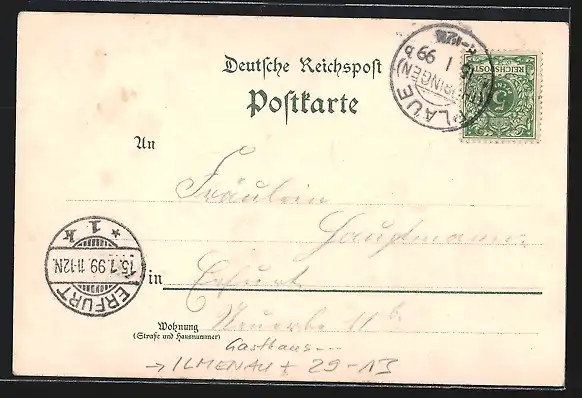 Deutsche Reichspost
Postkarte
PLAUE (THÜRINGEN)
15 1 99
REICHSPOST
5
An
Fräulein
Hauptmann
in Erfurt
11 b
Wohnung
(Straße und Hausnummer)
Gasthaus
→ ILMENAU + 29-13
* 1 k
15.1.99.11-12N.
ERFURT